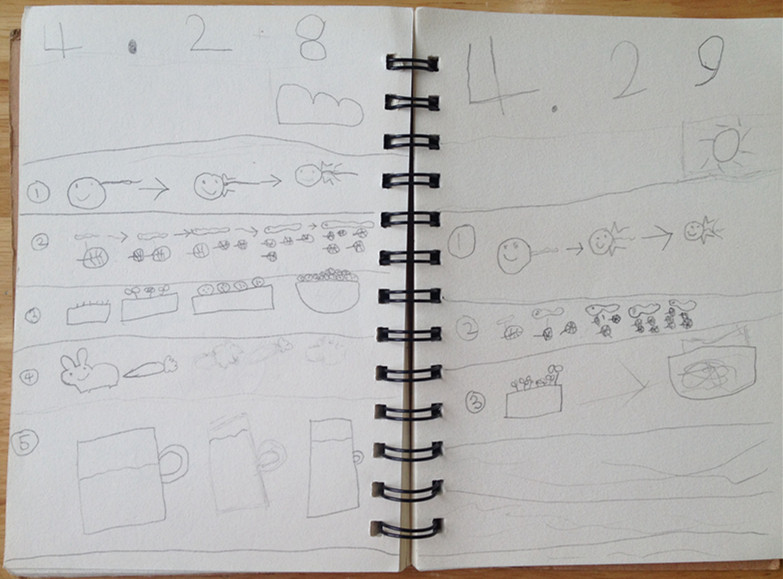 4 . 2 8
①
②
③
④
⑤
4 . 2 9
①
②
③